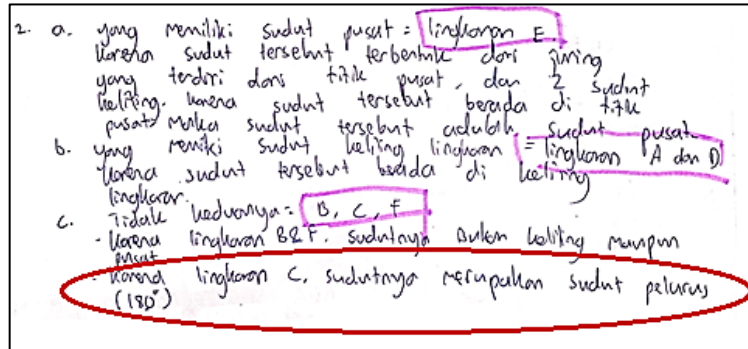 2. a. yang memiliki sudut pusat = lingkaran E.
karena sudut tersebut terbentuk dari juring
yang terdiri dari titik pusat, dan 2 sudut
keliling. karena sudut tersebut berada di titik
pusat maka sudut tersebut adalah sudut pusat
b. yang memiki sudut keliling lingkaran = lingkaran A dan D
karena sudut tersebut berada di keliling
lingkaran.
c. Tidak keduanya = B, C, F
- karena lingkaran B & F, sudutnya bukan keliling maupun
pusat
- karena lingkaran C, sudutnya merupakan sudut pelurus
(180°)